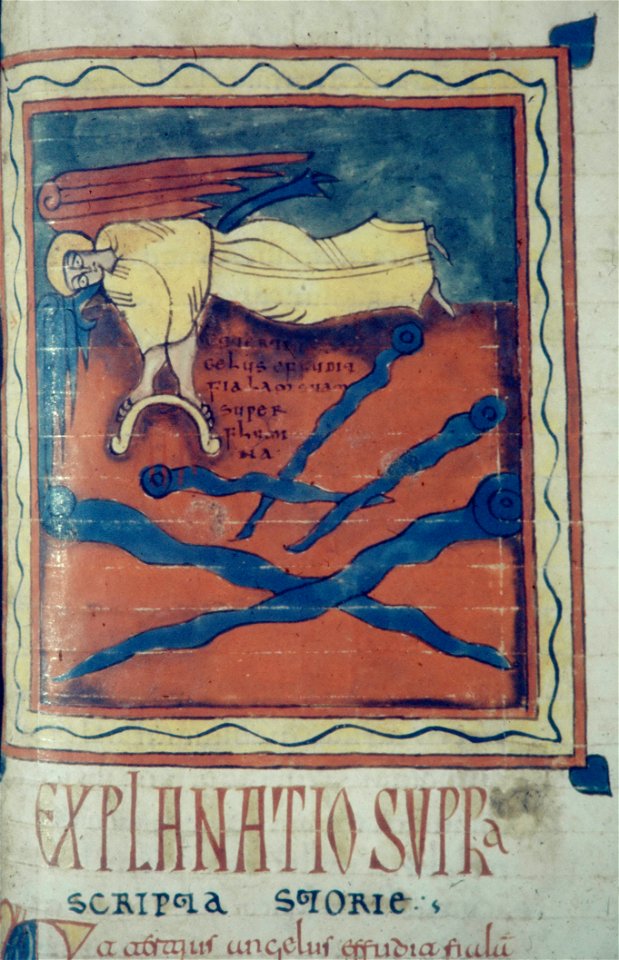 gelus effudit
fialam suam
super
flumi
na
EXPLANATIO SVPRa
SCRIPTA STORIE
angelus effudit fialā